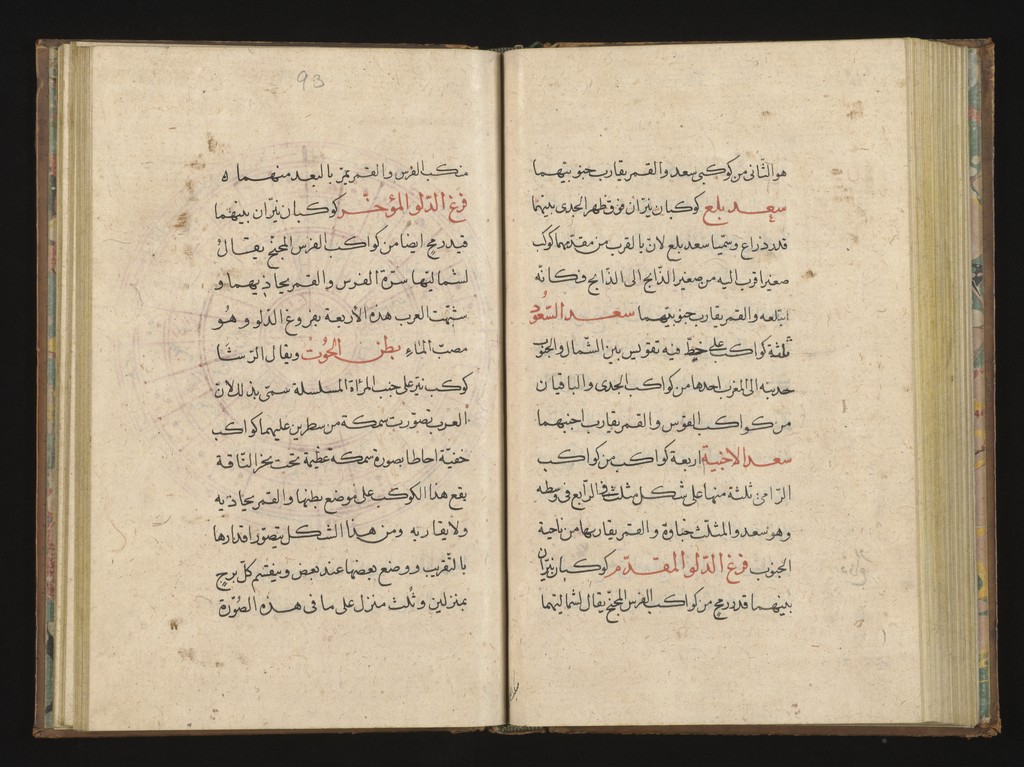 هو الثّانى من كوكبى سعد والقمر يقارب جنوبيتهما
سعد بلع كوكبان نيّران فوق ظهر الجدى بينهما
قدر ذراع وسمّيا سعد بلع لان بالقرب من مقدمهما كوكب
صغير اقرب اليه من صغير الذّابح الى الذّابح فكانّه
ابتلعه والقمر يقارب جنوبيتهما سعد السّعُود
ثلثة كواكب على خطّ فيه تقويس بين الشّمال والجنوب
حدبته الى المغرب احدها من كواكب الجدى والباقيان
من كواكب القوس والقمر يقارب اجنبهما
سعد الاخبية اربعة كواكب من كواكب
الرّامى ثلثة منها على شكل مثلث والرّابع فى وسطه
وهو سعد والمثلّث خباؤه والقمر يقاربها من ناحية
الجنوب فرغ الدّلو المقدّم كوكبان نيّران
بينهما قدر رمح من كواكب الفرس المجنّح يقال لشماليتهما
93
منكب الفرس والقمر يمرّ بالبعد منهما ه
فرغ الدّلو المؤخّر كوكبان نيّران بينهما
قيد رمح ايضا من كواكب الفرس المجنّح يقالُ
لشماليتها سرّة الفرس والقمر يحاذيهما و
شبّهت العرب هذه الأربعة بفروغ الدّلو وهُو
مصبّ الماء بطن الحُوت ويقال الرّشا
كوكب نيّر على جنب المرأة المسلسلة سمّى بذلك لانّ
العرب تصوّرت سمكة من سطرين عليهما كواكب
خفيّة احاطا بصورة سمكة عظيمة تحت نحر النّاقة
يقع هذا الكوكب على موضع بطنها والقمر يحاذيه
ولا يقاربه ومن هذا الشّكل يتصوّر اقدارها
بالتّقريب ووضع بعضها عند بعض وينقسم كلّ برج
بمنزلين وثُلث منزل على ما فى هذه الصّورة